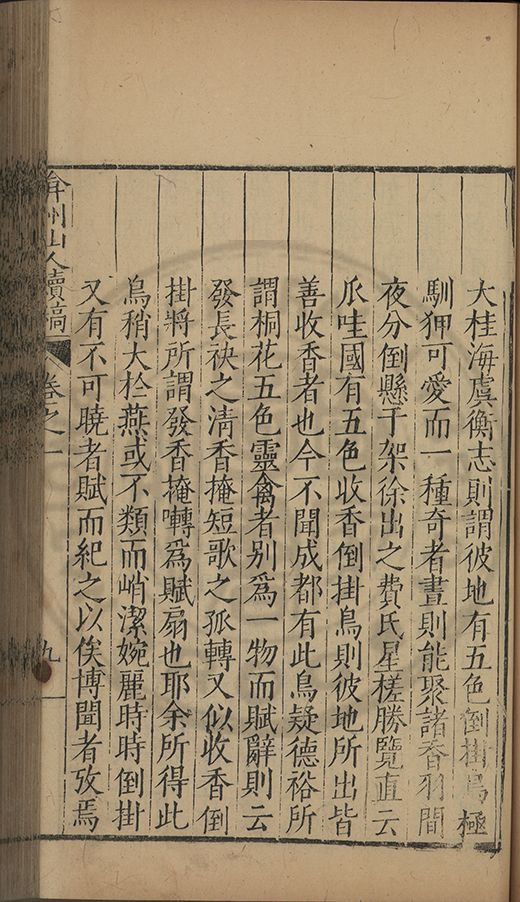 大桂海虞衡志則謂彼地有五色倒掛鳥極
馴狎可愛而一種奇者晝則能聚諸香羽間
夜分倒懸于架徐出之費氏星槎勝覽直云
爪哇國有五色收香倒掛鳥則彼地所出皆
善收香者也今不聞成都有此鳥疑德裕所
謂桐花五色靈禽者别爲一物而賦辭則云
發長袂之清香掩短歌之孤轉又似收香倒
掛將所謂發香掩囀爲賦扇也耶余所得此
鳥稍大於燕或不類而峭潔婉麗時時倒掛
又有不可曉者賦而紀之以俟博聞者攷焉
弇州山人續稿 卷之一 九